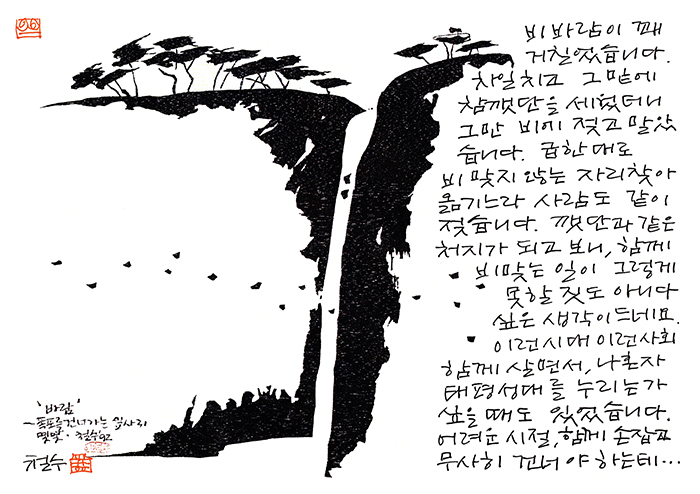 비바람이 꽤
거칠었습니다.
차일치고 그밑에
참깻단을 세웠더니
그만 비에 젖고 말았
습니다. 급한대로
비 맞지 않는 자리찾아
옮기느라 사람도 같이
젖습니다. 깻단과 같은
처지가 되고 보니, 함께
비맞는 일이 그렇게
못할 짓도 아니다
싶은 생각이 드네요.
이런시대 이런사회
함께 살면서, 나혼자
태평성대를 누리는가
싶을 때도 있었습니다.
어려운 시절, 함께 손잡고
무사히 건너야 하는데…
'바람'
-폭포를건너가는 잎사귀
몇몇. 철수92
철수